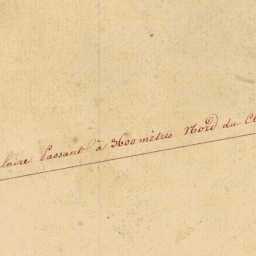 laire Passant à 3600 mètres Nord du Cl